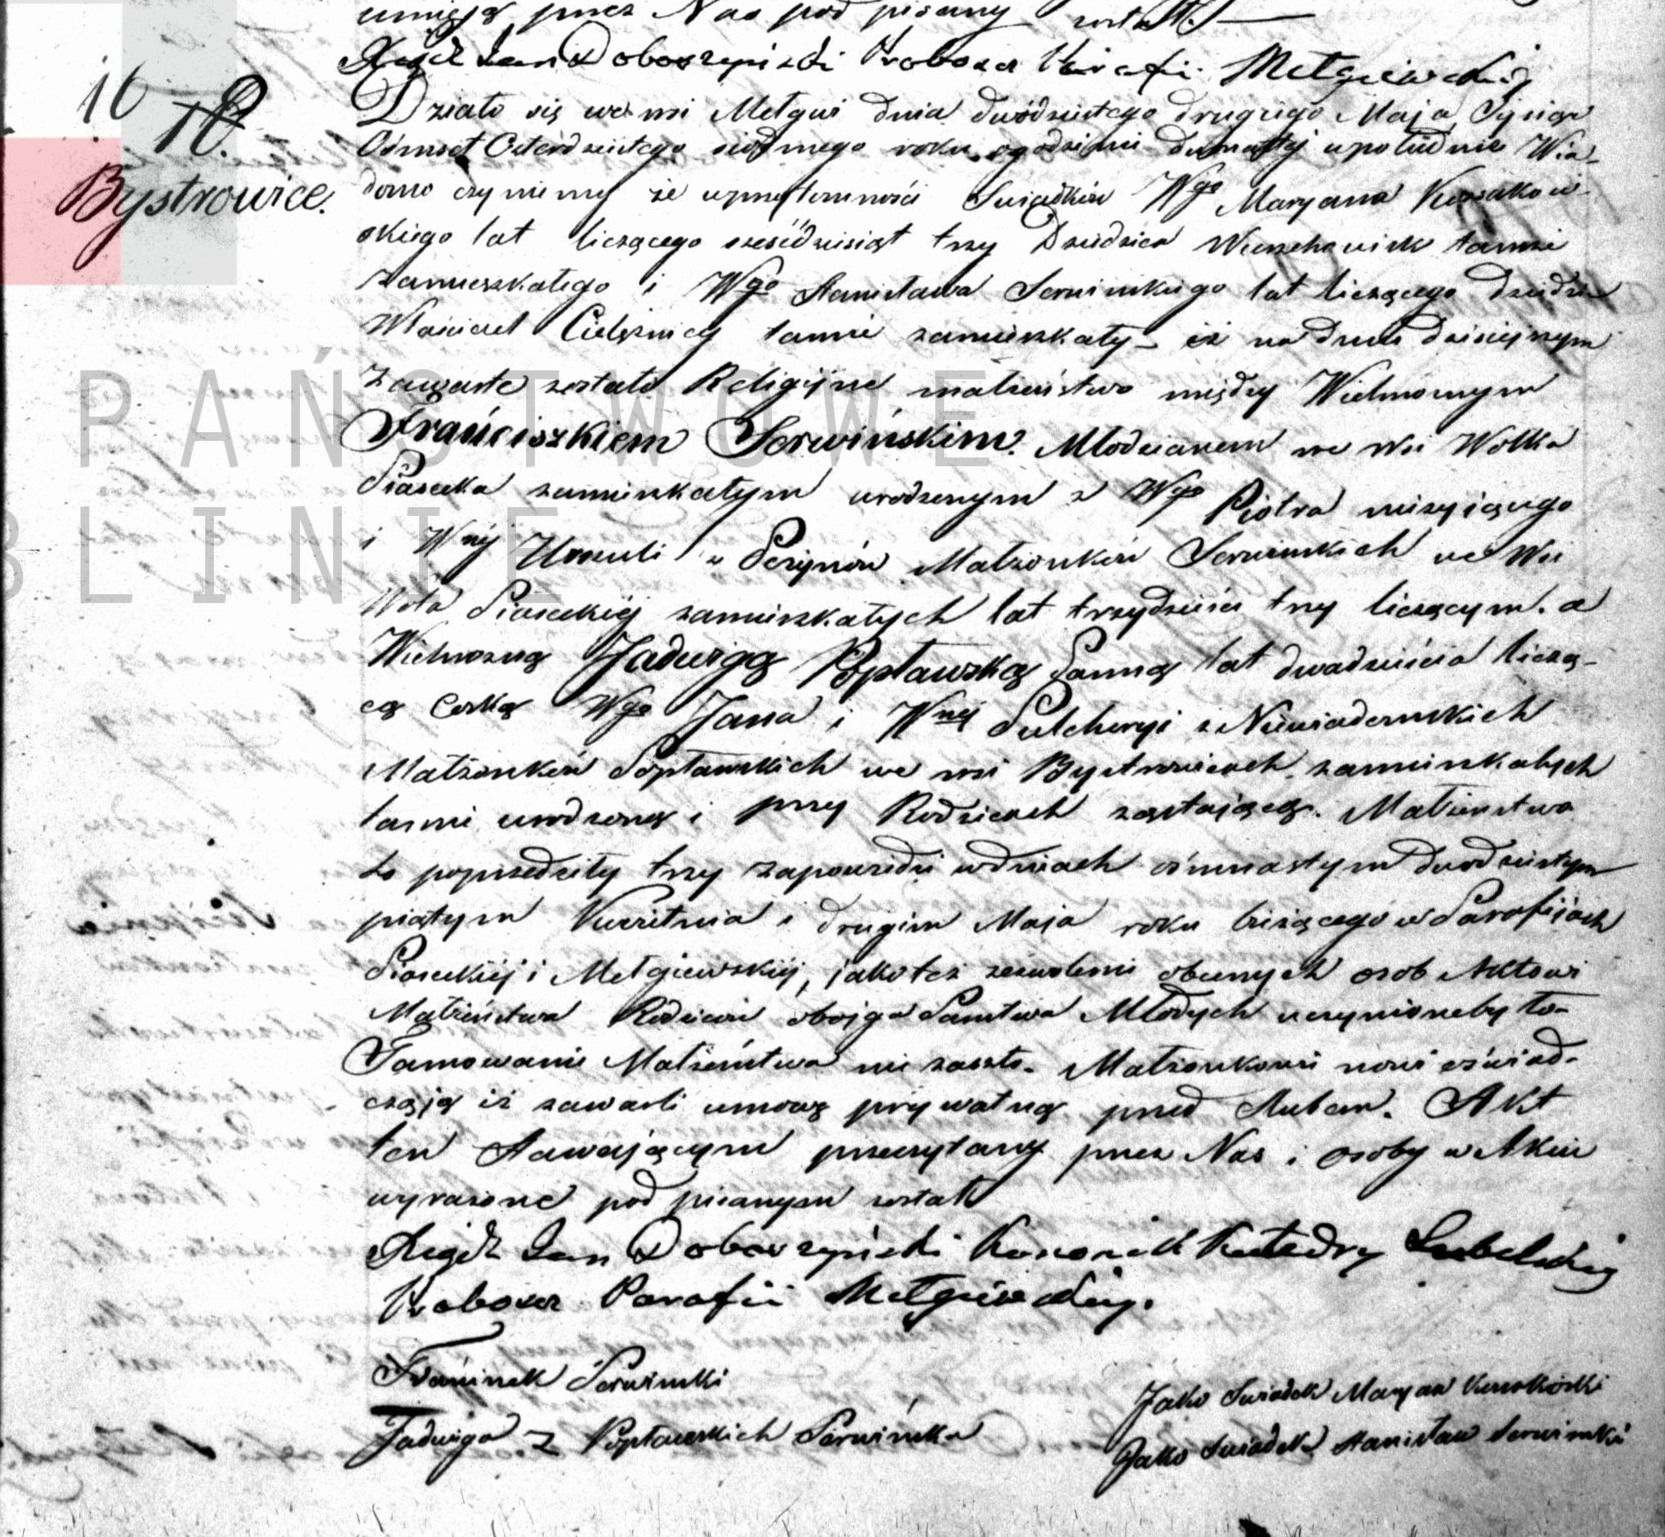 umieją przez Nas pod pisany został.
Xiądz Jan Doboszyński Proboszcz Parafii Mełgiewskiej
10
18.
Bystrowice.
Działo się we wsi Mełgwi dnia dwódziestego drugiego Maja Tysiąc
Ośmset Czterdziestego siódmego roku o godzinie dwunastej w południe Wia-
domo czyniemy że w przytomności Swiadków Wgo Maryana Kossakow-
skiego lat liczącego sześćdziesiąt trzy Dziedzica Wierzchowisk tamże
zamieszkałego i Wgo Stanisława Serwińskiego lat liczącego
Właściciel Ciełężnicy tamże zamieszkały iż na dniu dzisiejszym
Zawarte zostało Religijne małżeństwo między Wielmożnym
Franciszkiem Serwińskim. Młodzianem we wsi Wólka
Piasecka zamieszkałym urodzonym z Wgo Piotra nieżyjącego
i Wnéj Urszuli z Małżonków Serwińskich we Wsi
Wola Piaseckiéj zamieszkałych lat trzydzieści trzy liczącym. a
Wielmożną Jadwigą Popławską Panną lat dwadzieścia liczą-
cą Corką Wgo Jana i Wnéj Pulcheryi z Niewiadomskich
Małżonków Popławskich we wsi Bystrowicach zamieszkałych
tamże urodzoną i przy Rodzicach zostającą. Małżeństwo
to poprzedziły trzy zapowiedzi w dniach ośmnastym dwodziestym
piątym Kwietnia i drugim Maja roku bieżącego w Parafijach
Piaseckiéj i Mełgiewskiéj, jako też zezwolenie obecnych osob Aktowi
Małżeństwa Rodziców obojga Państwa Młodych uczynione było-
Tamowanie Małżeństwa nie zaszło. Małżonkowie nowi oświad-
czają iż zawarli umowę prywatną przed ślubem. Akt
ten Stawającym przeczytany przez Nas i osoby w Akcie
wyrażone pod pisanym został
Xiądz Jan Doboszyński Kanonik Katedry Lubelskiej
Proboszcz Parafii Mełgiewskiej.
Franciszek Serwiński
Jadwiga z Popławskich Serwińska
Jako Swiadek Maryan Kossakoski
Jako Swiadek Stanisław Serwiński
PAŃSTWOWE
BLINIE